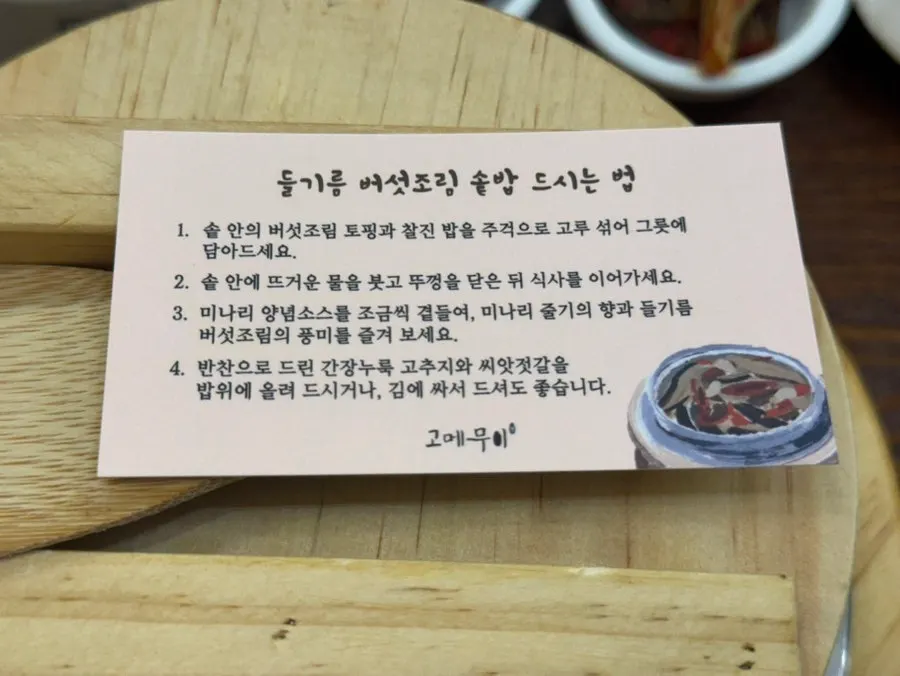 들기름 버섯조림 솥밥 드시는 법
1. 솥 안의 버섯조림 토핑과 찰진 밥을 주걱으로 고루 섞어 그릇에
담아드세요.
2. 솥 안에 뜨거운 물을 붓고 뚜껑을 닫은 뒤 식사를 이어가세요.
3. 미나리 양념소스를 조금씩 곁들여, 미나리 줄기의 향과 들기름
버섯조림의 풍미를 즐겨 보세요.
4. 반찬으로 드린 간장누룩 고추지와 씨앗젓갈을
밥위에 올려 드시거나, 김에 싸서 드셔도 좋습니다.
고메무이